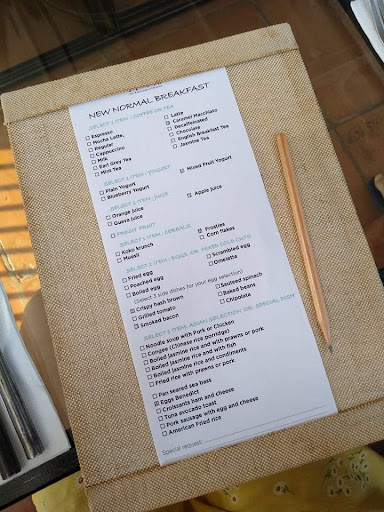 NEW NORMAL BREAKFAST
SELECT 1 ITEM : COFFEE OR TEA
Espresso Latte
Mocha Latte, Caramel Macchiato
Regular Decaffeinated
Cappuccino Chocolate
Milk English Breakfast Tea
Earl Grey Tea Jasmine Tea
Mint Tea
SELECT 1 ITEM : YOGURT
Plain Yogurt Mixed Fruit Yogurt
Blueberry Yogurt
SELECT 1 ITEM : JUICE
Orange juice Apple juice
Guava juice
FRESH FRUIT
SELECT 1 ITEM : CEREALS
Koko krunch Frosties
Muesli Corn flakes
SELECT 1 ITEM : EGGS OR MIXED COLD CUTS
Fried egg Scrambled egg
Poached egg Omelette
Boiled egg
(Select 3 side dishes for your egg selection)
Crispy hash brown Sautéed spinach
Grilled tomato Baked beans
Smoked bacon Chipolata
SELECT 1 ITEM: ASIAN SELECTION OR SPECIAL DISH
Noodle soup with Pork or Chicken
Congee (Chinese rice porridge)
Boiled Jasmine rice and with prawns or pork
Boiled Jasmine rice and with fish
Boiled Jasmine rice and condiments
Fried rice with prawns or pork
Pan seared sea bass
Eggs Benedict
Croissants ham and cheese
Tuna avocado toast
Pork sausage with egg and cheese
American Fried rice
Special request: